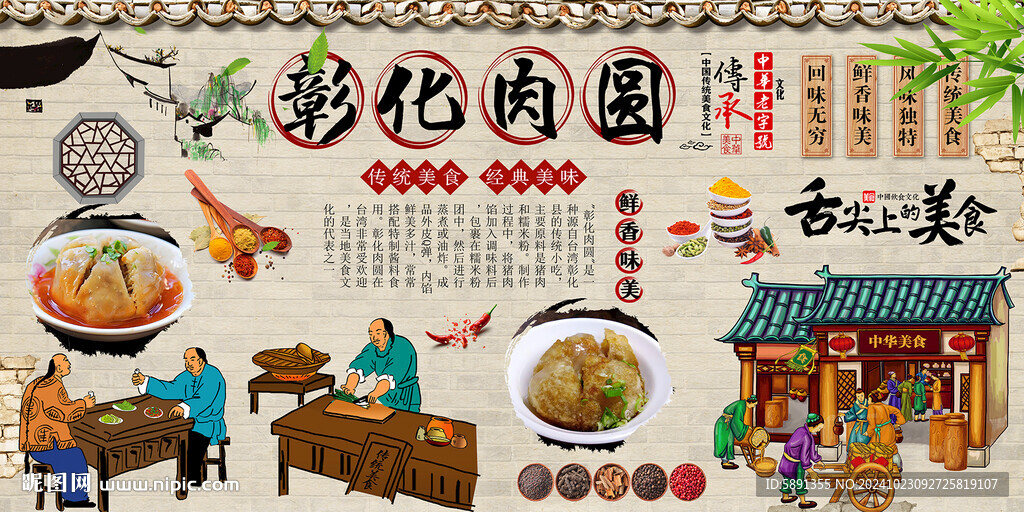 彰化肉圆
【中国传统美食文化】
傳承
中華美食
中華老字號
文化
回味无穷
鲜香味美
风味独特
传统美食
传统美食 经典美味
“彰化肉圆”是一
种源自台湾彰化
县的传统小吃，
主要原料是猪肉
和糯米粉。制作
过程中，将猪肉
馅加入调味料后
，包裹在糯米粉
团中，然后进行
蒸煮或油炸。成
品外皮Q弹，内馅
鲜美多汁，常常
搭配特制酱料食
用。彰化肉圆在
台湾非常受欢迎
，是当地美食文
化的代表之一
鲜香味美
美食 中國飲食文化
舌尖上的美食
中华美食
传统美食
昵图网 www.nipic.com
ID:5891355 NO:20241023092725819107